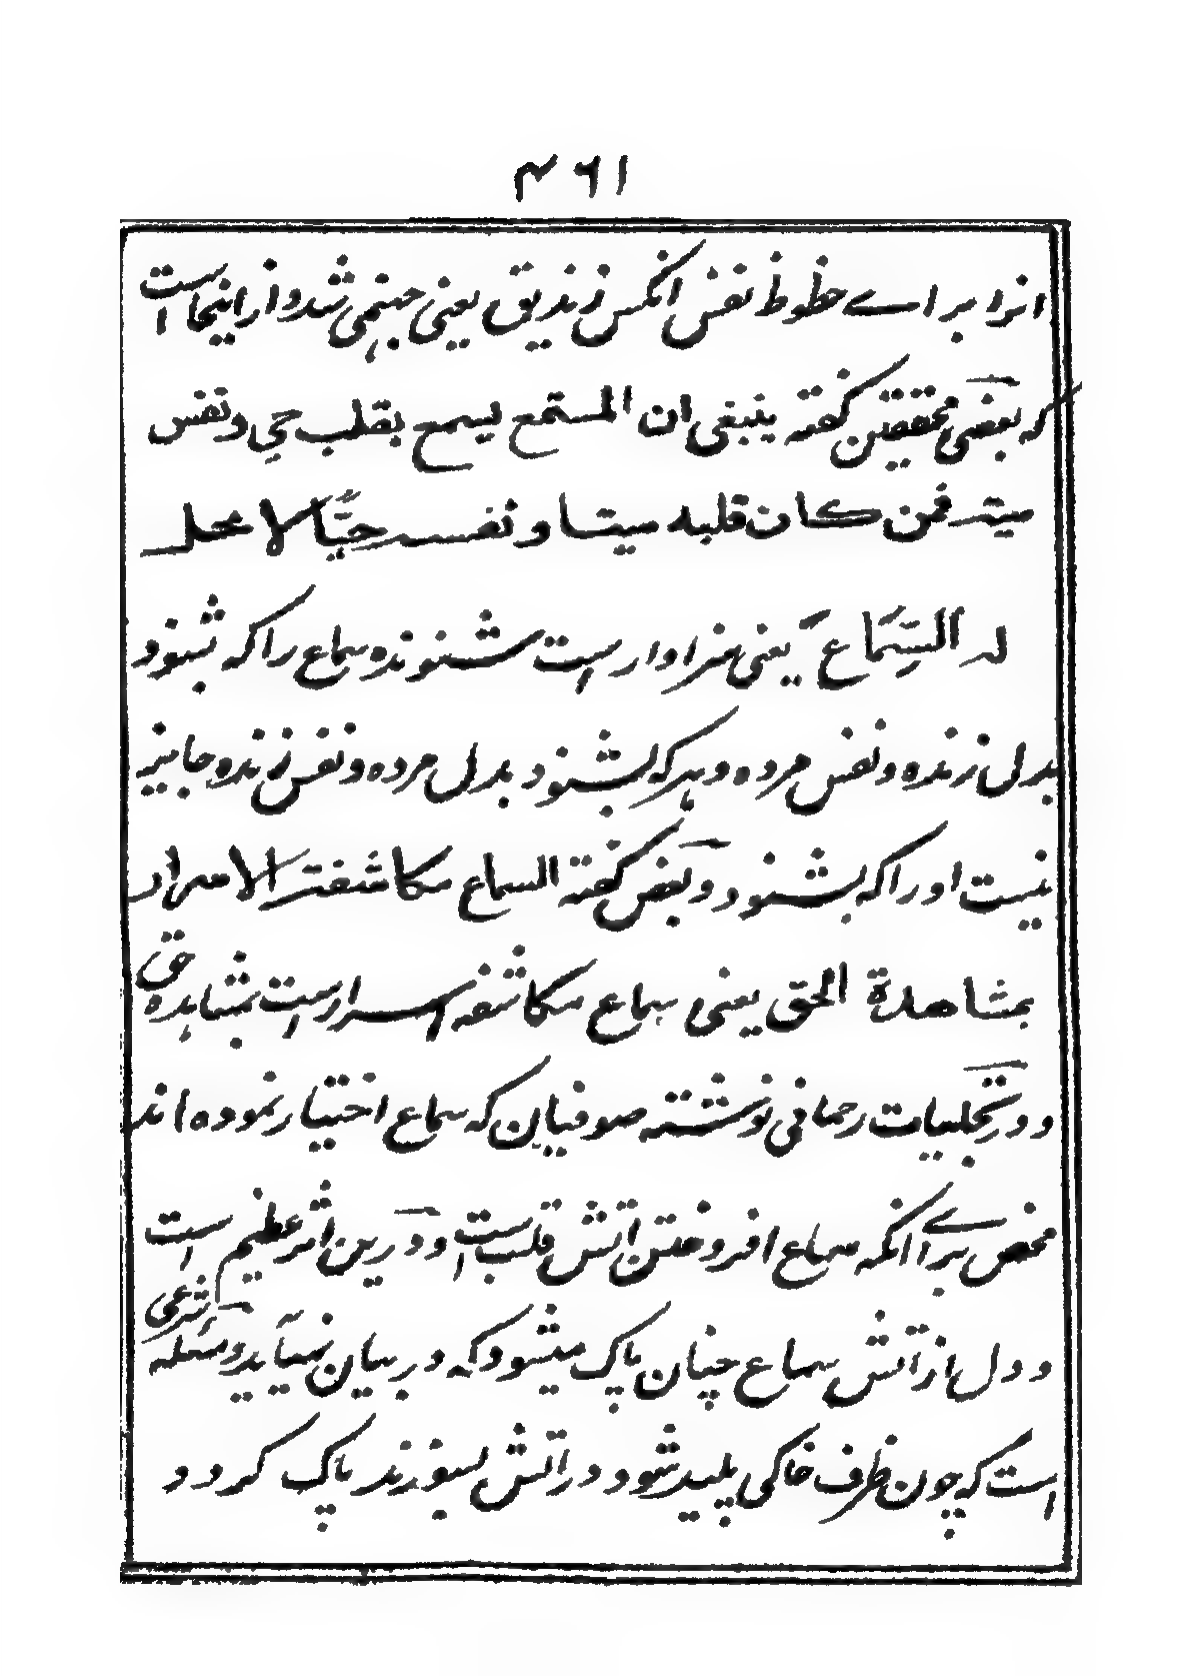 ۴۶۱
انرا براے حظوظ نفس انکس زندیق یعنی جہنمی شد و از اینجا است
که بعضی محققین گفته ینبغی ان المستمع یسمع بقلب حی و نفس
میتہ فمن کان قلبه میتا و نفسه حیًّا لا یحل
له السماع یعنی سزاوار است شنونده سماع را که بشنود
بدل زنده و نفس مرده و ہرکه بشنود بدل مرده و نفس زنده جایز
نیست او را که بشنود و بعض گفته السماع مکاشفة الاسرار
بمشاهدة الحق یعنی سماع مکاشفه اسرار است بمشاہده حق
و در تجلیات رحمانی نوشته صوفیان که سماع اختیار نموده اند
محض براے انکه سماع افروختن اتش قلب است و درین اثر عظیم است
و دل از اتش سماع چنان پاک میشود که در بیان نمیآید و مسئله شرعی
است که چون ظرف خاکی پلید شود در اتش بسوزند پاک گردد و